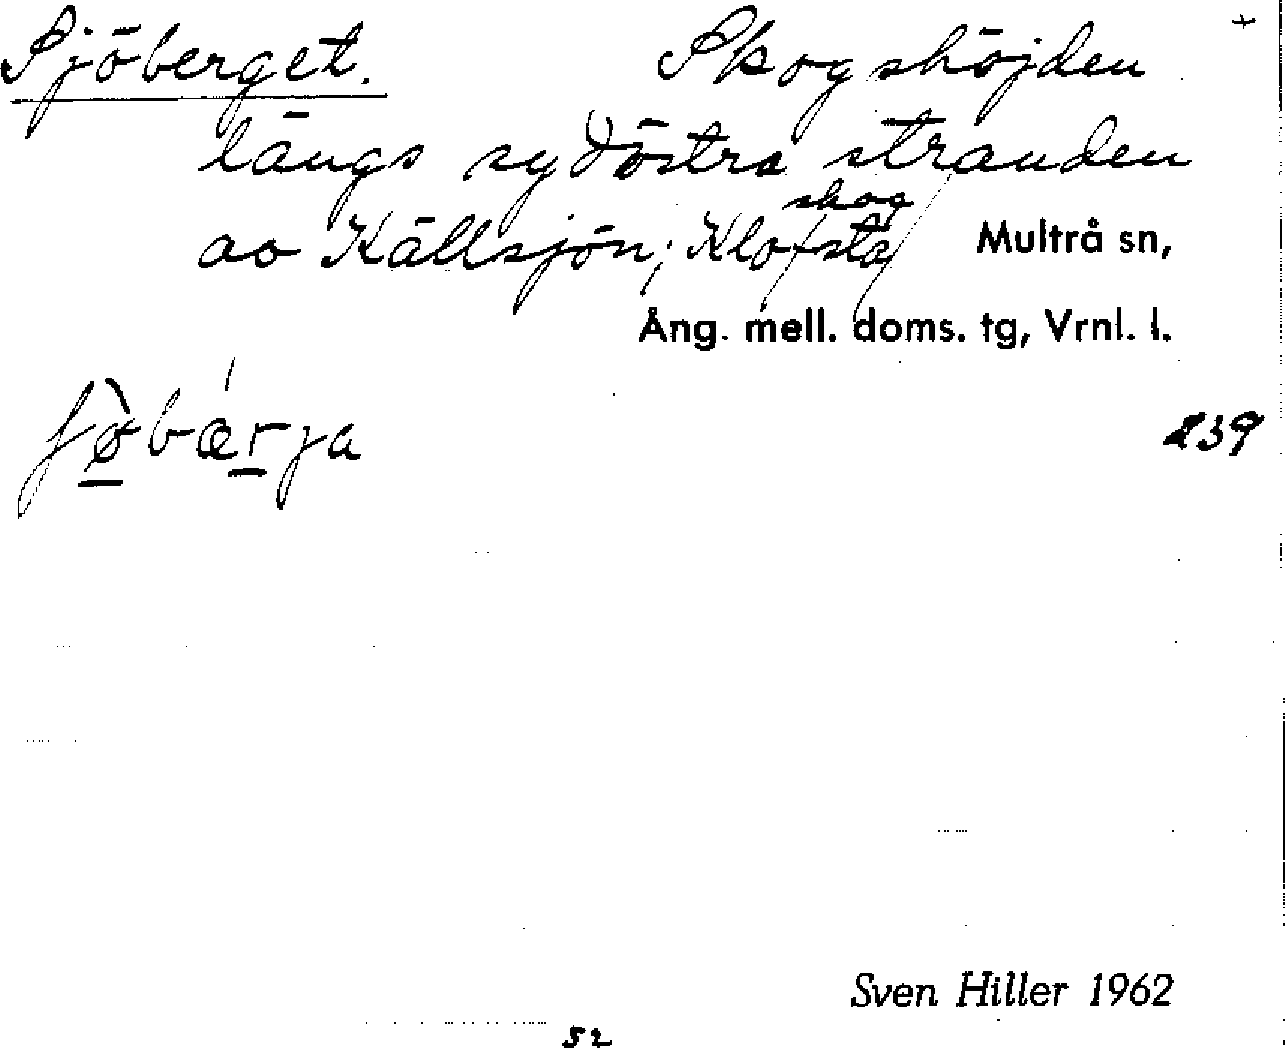 +
Sjöberget. Skogshöjden
längs sydöstra stranden
av Källsjön; Klofsta skog
Multrå sn,
Ång. mell. doms. tg, Vrnl. l.
ʃø̀bǽrja
239
Sven Hiller 1962
52